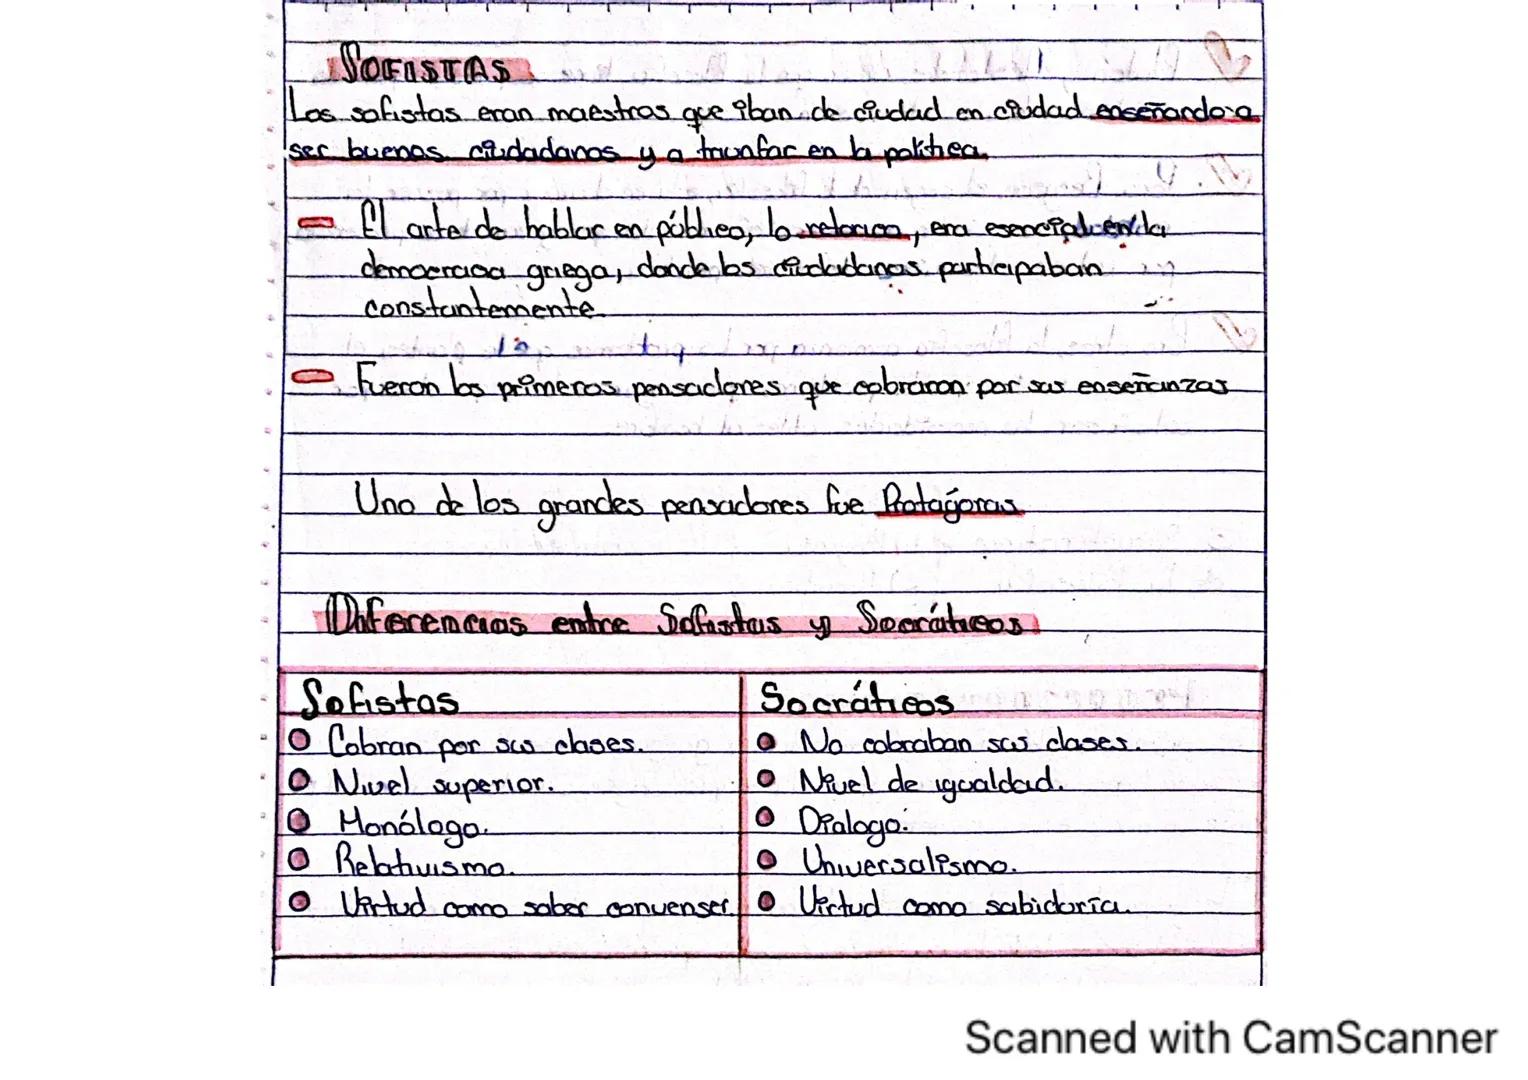 SOFISTAS
Los sofistas eran maestros que iban de ciudad en ciudad enseñando a
ser buenos ciudadanos y a triunfar en la política.
- El arte de hablar en público, la retorica, era esencial en la
democracia griega, donde los ciudadanos participaban
constantemente.
- Fueron los primeros pensadores que cobraron por sus enseñanzas
Uno de los grandes pensadores fue Protágoras.
Diferencias entre Sofistas y Socráticos
Sofistas
• Cobran por sus clases.
• Nivel superior.
• Monólogo.
• Relativismo.
• Virtud como saber convenser.
Socráticos
• No cobraban sus clases.
• Nivel de igualdad.
• Dialogo.
• Universalismo.
• Virtud como sabiduría.
Scanned with CamScanner